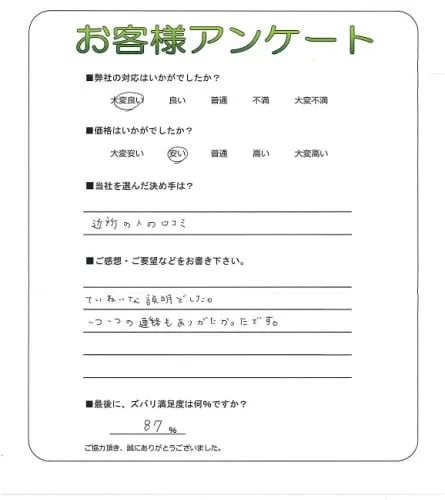 お客様アンケート
■弊社の対応はいかがでしたか？
大変良い 良い 普通 不満 大変不満
■価格はいかがでしたか？
大変安い 安い 普通 高い 大変高い
■当社を選んだ決め手は？
近所の人の口コミ
■ご感想・ご要望などをお書き下さい。
ていねいな説明でした。
一つ一つの連絡もありがたかったです。
■最後に、ズバリ満足度は何%ですか？
87 %
ご協力頂き、誠にありがとうございました。